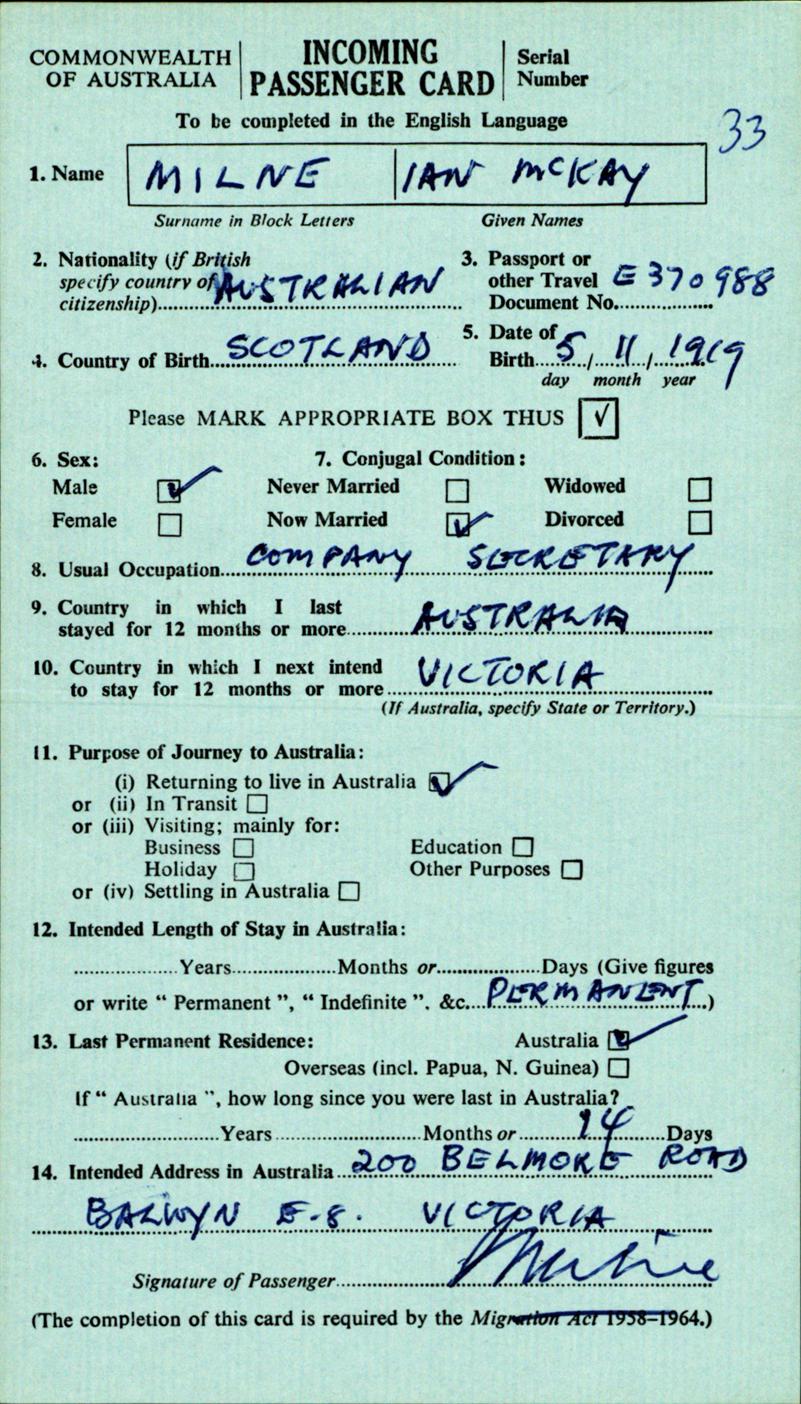 COMMONWEALTH OF AUSTRALIA
INCOMING PASSENGER CARD
Serial Number
To be completed in the English Language
33
1. Name MILNE IAN McKAY
Surname in Block Letters Given Names
2. Nationality (if British specify country of citizenship) AUSTRALIAN
3. Passport or other Travel Document No. E 370988
4. Country of Birth SCOTLAND
5. Date of Birth 5 / 11 / 1919
day month year
Please MARK APPROPRIATE BOX THUS ✓
6. Sex: 7. Conjugal Condition:
Male ✓ Never Married Widowed
Female Now Married ✓ Divorced
8. Usual Occupation COMPANY SECRETARY
9. Country in which I last
stayed for 12 months or more AUSTRALIA
10. Country in which I next intend
to stay for 12 months or more VICTORIA
(If Australia, specify State or Territory.)
11. Purpose of Journey to Australia:
(i) Returning to live in Australia ✓
or (ii) In Transit
or (iii) Visiting; mainly for:
Business Education
Holiday Other Purposes
or (iv) Settling in Australia
12. Intended Length of Stay in Australia:
Years Months or Days (Give figures
or write "Permanent", "Indefinite". &c. PERMANENT)
13. Last Permanent Residence: Australia ✓
Overseas (incl. Papua, N. Guinea)
If "Australia", how long since you were last in Australia?
Years Months or 14 Days
14. Intended Address in Australia 200 BELMORE ROAD
BALWYN E.8. VICTORIA
Signature of Passenger
(The completion of this card is required by the Migration Act 1958–1964.)